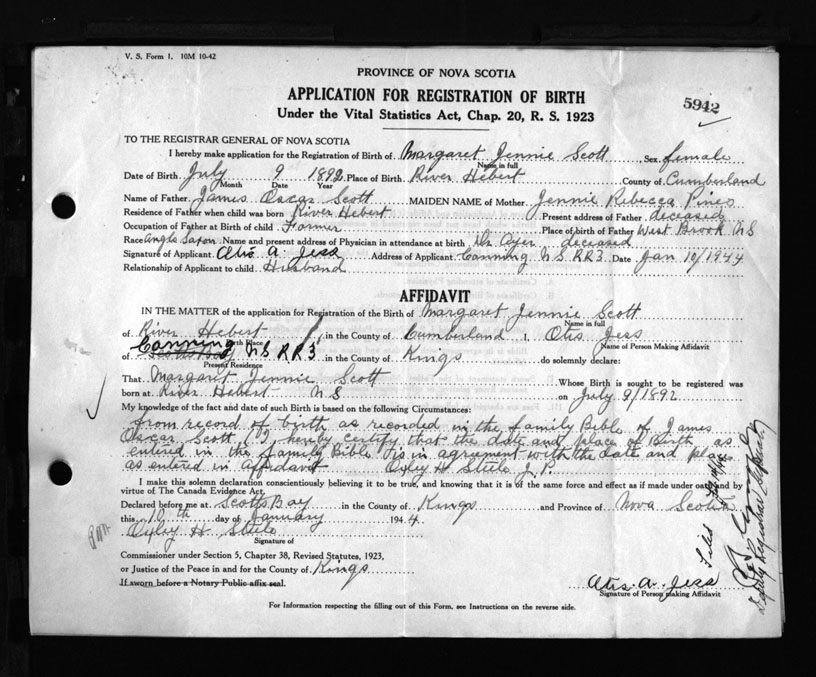 V. S. Form 1. 10M 10-42
PROVINCE OF NOVA SCOTIA
5942
APPLICATION FOR REGISTRATION OF BIRTH
Under the Vital Statistics Act, Chap. 20, R. S. 1923
TO THE REGISTRAR GENERAL OF NOVA SCOTIA
I hereby make application for the Registration of Birth of Margaret Jennie Scott, Sex female
Name in full
Date of Birth July 9 1892 Place of Birth River Hebert County of Cumberland
Month Date Year
Name of Father James Oscar Scott MAIDEN NAME of Mother Jennie Rebecca Pines
Residence of Father when child was born River Hebert Present address of Father deceased
Occupation of Father at Birth of child Farmer Place of birth of Father West Brook NS
Race Anglo Saxon Name and present address of Physician in attendance at birth Dr Ayer deceased
Signature of Applicant Otis A. Jess Address of Applicant Canning NS RR3 Date Jan 10/1944
Relationship of Applicant to child Husband
AFFIDAVIT
IN THE MATTER of the application for Registration of the Birth of Margaret Jennie Scott
Name in full
of River Hebert, in the County of Cumberland I, Otis Jess
Birth Place Name of Person Making Affidavit
of Canning NS RR3 in the County of Kings do solemnly declare:
Present Residence
That Margaret Jennie Scott Whose Birth is sought to be registered was
born at River Hebert NS on July 9/1892
My knowledge of the fact and date of such Birth is based on the following Circumstances:
from record of birth as recorded in the family Bible of James
Oscar Scott. "I, hereby certify that the date and place of Birth as
entered in the family Bible is in agreement with the date and place
as entered in Affidavit Oxley H Steele J.P.
I make this solemn declaration conscientiously believing it to be true, and knowing that it is of the same force and effect as if made under oath and by
virtue of The Canada Evidence Act.
Declared before me at Scotts Bay in the County of Kings and Province of Nova Scotia
this 10th day of January 1944
Oxley H Steele
Signature of
Commissioner under Section 5, Chapter 38, Revised Statutes, 1923,
or Justice of the Peace in and for the County of Kings
If sworn before a Notary Public affix seal.
Otis. A. Jess
Signature of Person making Affidavit
For Information respecting the filling out of this Form, see Instructions on the reverse side.
Filed
Deputy Registrar General